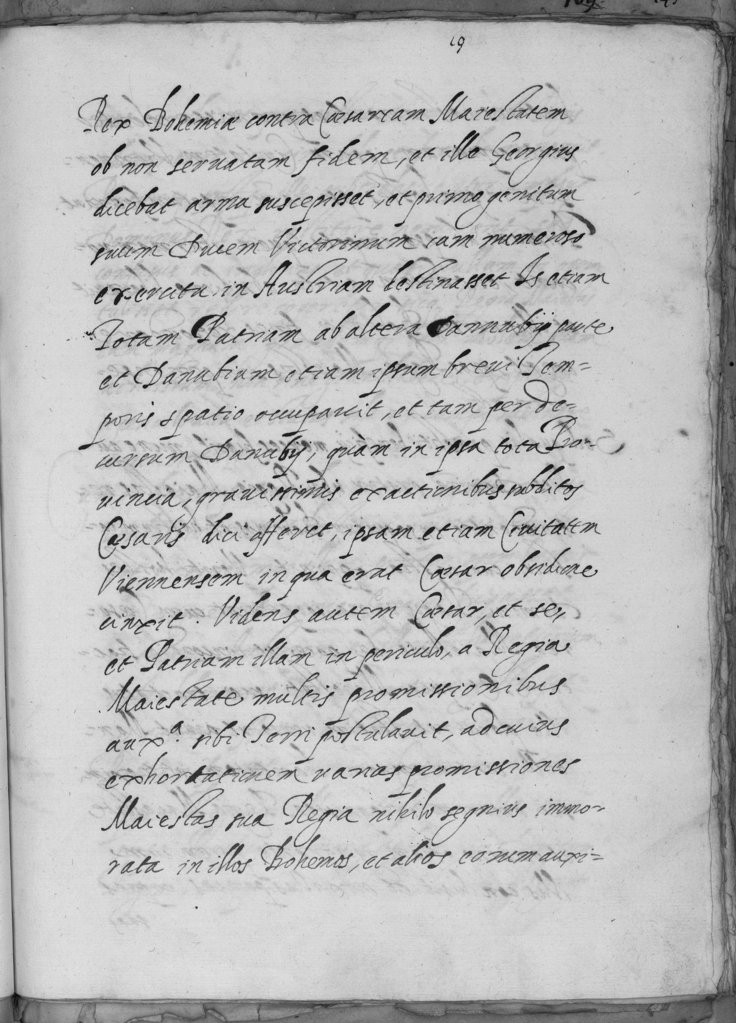 19
Rex Bohemiæ contra Cæsaream Maiestatem
ob non seruatam fidem, et ille Georgius
dicebat arma suscepisset, et primogenitum
suum Ducem Victorinum cum numeroso
exercitu in Austriam destinasset Is etiam
Totam Patriam ab altera Dannubij parte
et Danubium etiam ipsum breui Tem=
poris spatio occupauit, et tam per de=
cursum Danubij, quam in ipsa tota Pro=
uincia, grauissimis exactionibus subditos
Cæsaris dici fferet, ipsam etiam Ciuitatem
Viennensem in qua erat Cæsar obsidione
cinxit. Videns autem Cæsar, et se,
et Patriam illam in periculo, a Regia
Maiestate multis promissionibus
auxª. sibi Ferri postulauit, ad cuius
exhortationem varias promissiones
Maiestas sua Regia nihilo segnius immo=
rata in illos Bohemos, et alios eorum auxi=